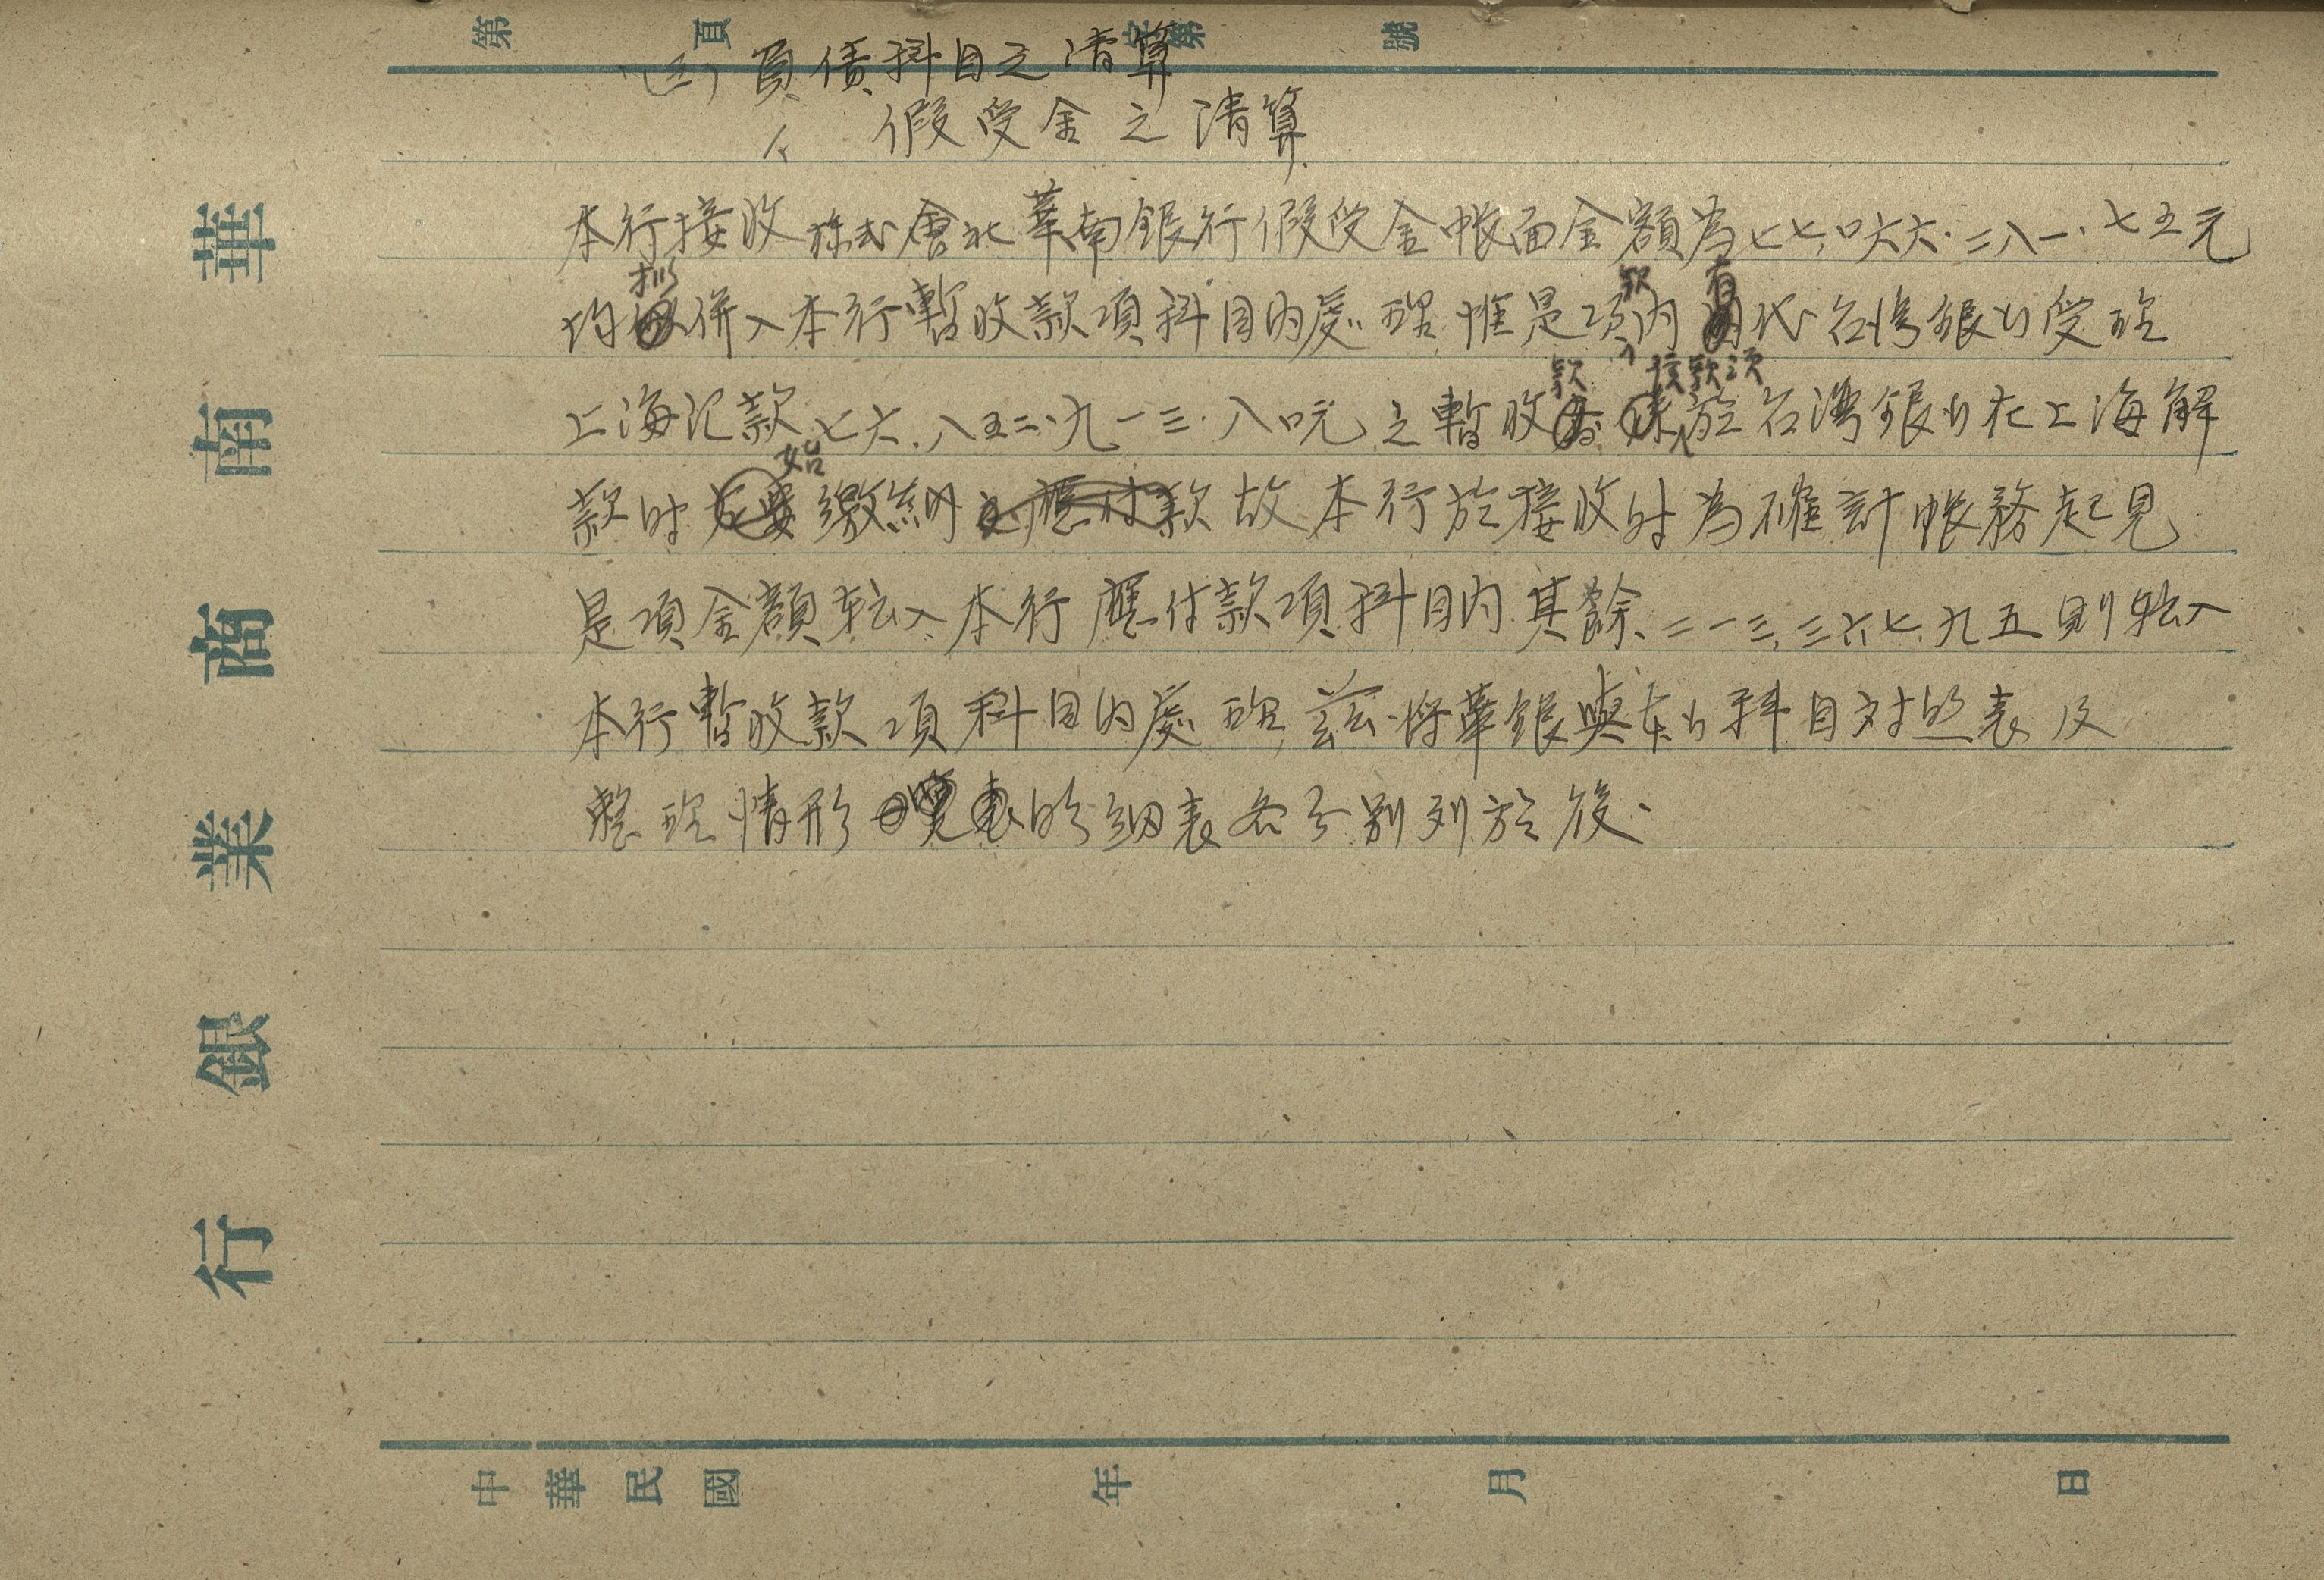 第 頁 字第 號
(三) 負債科目之清算
イ 假受金之清算
本行接收株式會社華南銀行假受金帳面金額為七七、〇六六、二八一、七五元
均擬併入本行暫收款項科目內處理惟是項款內有代台灣銀行受理
上海汇款七六、八五二、九一三、八〇元之暫收款該款項於台灣銀行在上海解
款时始繳納故本行於接收时為確計帳務起見
是項金額転入本行應付款項科目內其餘二一三、三六七、九五則転入
本行暫收款項科目內處理茲将華銀與本行科目対照表及
整理情形明細表各分別列於後
華南商業銀行
中華民國 年 月 日